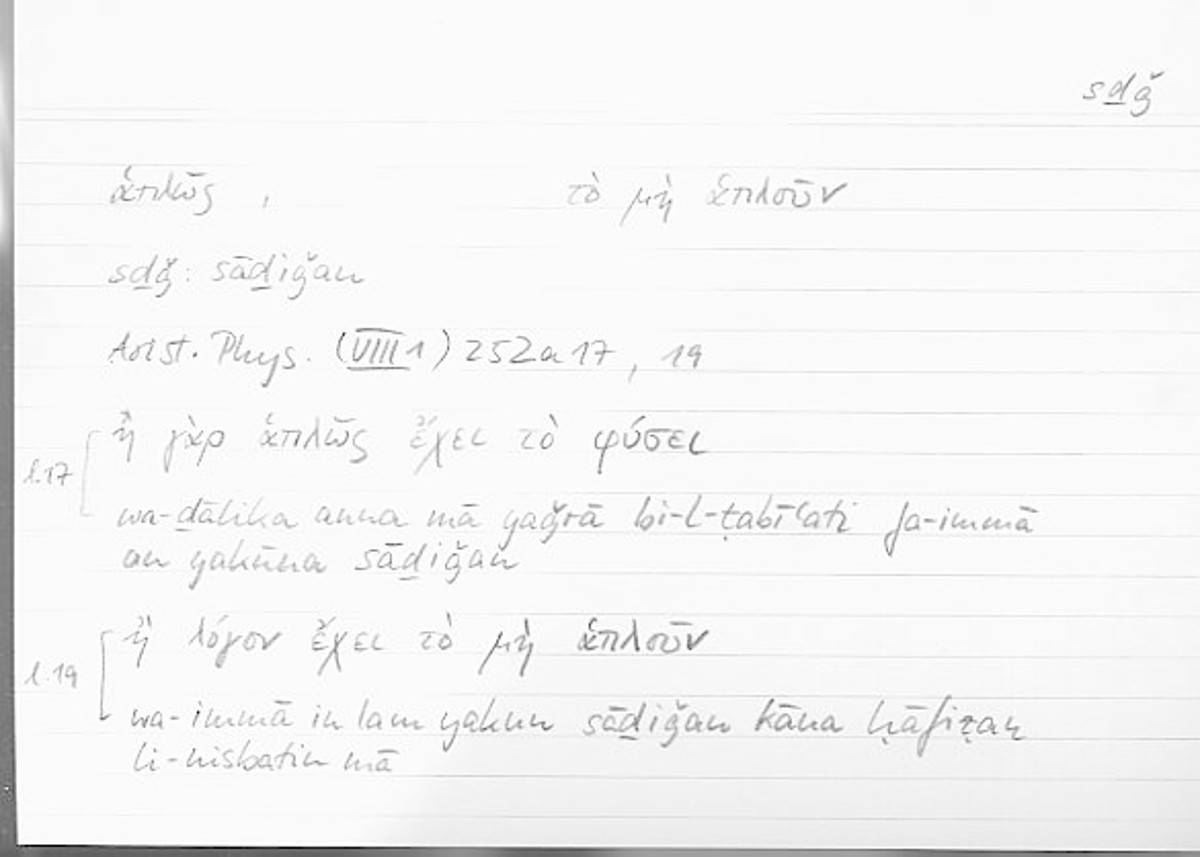 sḏǧ
ἁπλῶς , τὸ μὴ ἁπλοῦν
sḏǧ: sāḏiǧan
Arist. Phys. (VIII 1) 252a17, 19
l.17 ἢ γὰρ ἁπλῶς ἔχει τὸ φύσει
wa-ḏālika anna mā yaǧrā bi-l-ṭabīʿati fa-immā
an yakūna sāḏiǧan
l.19 ἢ λόγον ἔχει τὸ μὴ ἁπλοῦν
wa-immā in lam yakun sāḏiǧan kāna ḥāfiẓan
li-nisbatin mā